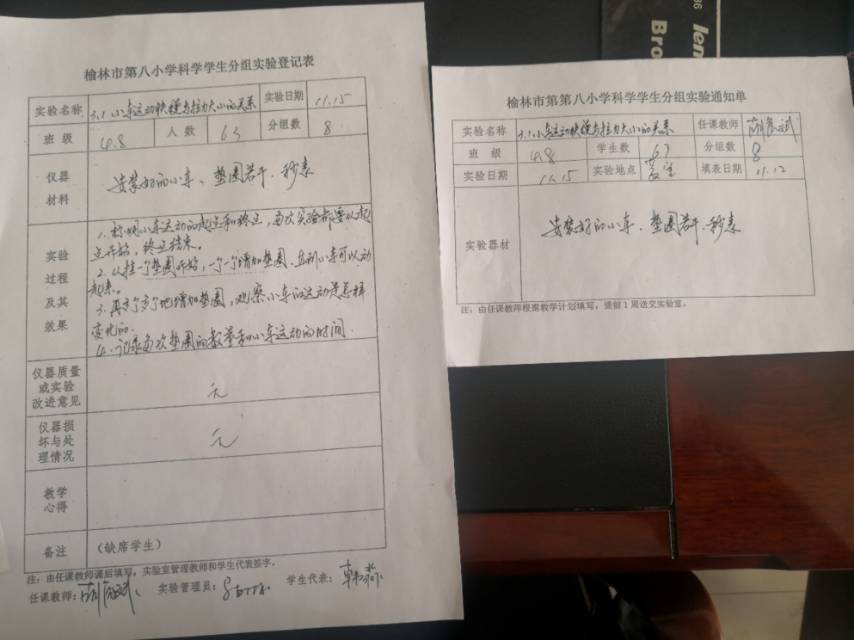 榆林市第八小学科学学生分组实验登记表
实验名称 3.1.小车运动快慢与拉力大小的关系 实验日期 11.15
班 级 4.8 人 数 63 分组数 8
仪器
材料
安装好的小车、垫圈若干、秒表
实验
过程
及其
效果
1.标明小车运动的起点和终点,每次实验都要从起
点开始,终点结束。
2.从挂一个垫圈开始,一个一个增加垫圈、直到小车可以动
起来。
3.再
地增加垫圈,观察小车的运动是怎样
变化的
4.记录每次垫圈的数量和小车运动的时间
仪器质量
或实验
改进意见
无
仪器损
坏与处
理情况
无
教学
心得
备注 (缺席学生)
注:由任课教师课后填写,实验室管理教师和学生代表签字。
任课教师: 实验管理员: 学生代表:韩淼
榆林市第第八小学科学学生分组实验通知单
实验名称 3.1.小车运动快慢与拉力大小的关系 任课教师
班 级 4.8 学生数 63 分组数 8
实验日期 11.15 实验地点 教室 填表日期 11.12
实验器材
安装好的小车、垫圈若干、秒表
注:由任课教师根据教学计划填写,提前1周送交实验室。